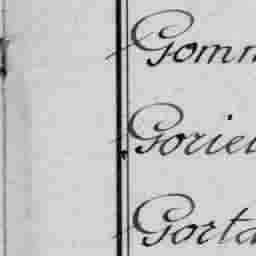 Gomm
Goriel
Gorta